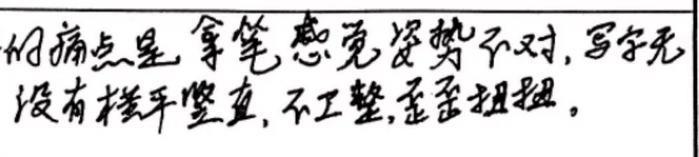 的痛点是拿笔感觉姿势不对,写字无
没有横平竖直,不工整,歪歪扭扭。